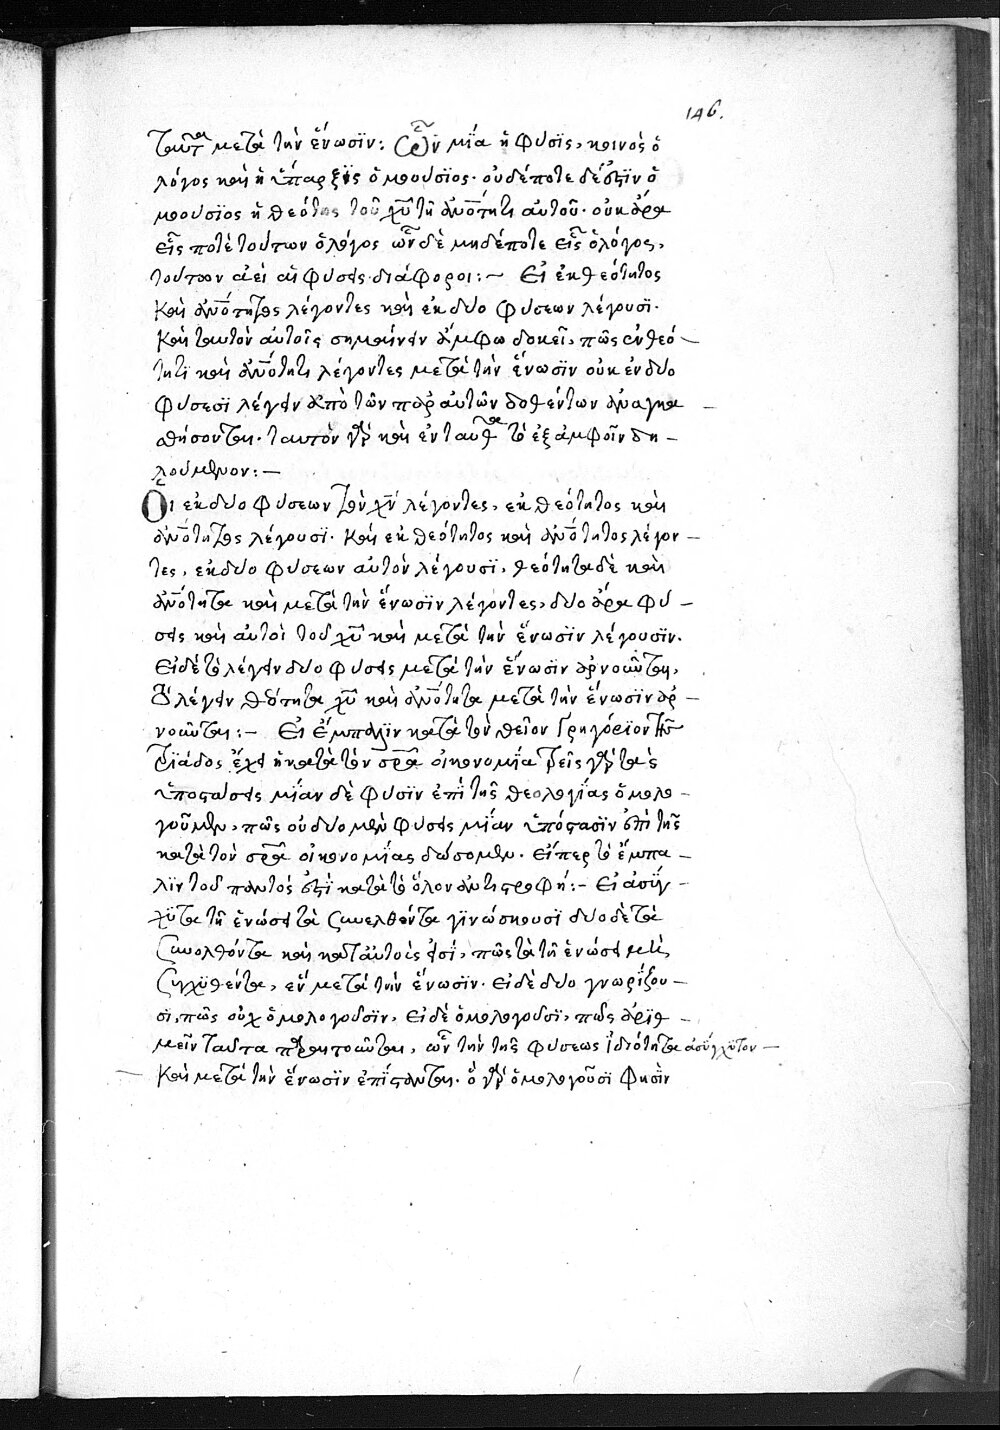 146.
ταῦτα μετὰ τὴν ἕνωσϊν: Ὧν μΐα ἡ φύσϊς, κοινὸς ὁ
λόγος καὶ ἡ ὕπαρξϊς ὁμοούσϊος· οὐδέποτε δέ ἐστϊν ὁ
μοουσϊος ἡ θεότης τοῦ χῦ τῆ ἀνότητι αὐτοῦ· οὐκ ἄρα
εἷς ποτὲ τούτων ὁ λόγος ὧν δὲ μηδέποτε εἷς ὁ λόγος,
τούτων ἀεὶ αἱ φύσεις διάφοροι:– Εἰ ἐκ θεότητος
καὶ ἀνότητος λέγοντες καὶ ἐκ δυο φύσεων λέγουσϊ·
καὶ ταυτὸν αὐτοῖς σημαίνειν ἄμφω δοκεῖ, πῶς ἐν θεό –
τητϊ καὶ ἀνότητι λέγοντες μετὰ τὴν ἕνωσϊν οὐκ ἐν δυο
φύσεσϊ λέγειν ἀπὸ τῶν παρ αὐτῶν δοθέντων ἀναγκα –
σθήσονται· ταυτὸν γὰρ καὶ ἐνταῦθα τὸ ἐξ ἀμφοῖν δη –
λούμενον:–
Οἱ ἐκ δυο φύσεων τὸν χν λέγοντες, ἐκ θεότητος καὶ
ἀνότητος λέγουσϊ· καὶ ἐκ θεότητος καὶ ἀνότητος λέγον –
τες, ἐκ δυο φύσεων αὐτὸν λέγουσϊ, θεότητα δὲ καὶ
ἀνότητα καὶ μετὰ τὴν ἕνωσϊν λέγοντες, δυο ἄρα φύ –
σεις καὶ αὐτοὶ τοῦ χῦ καὶ μετὰ τὴν ἕνωσϊν λέγουσϊν.
Εἰ δὲ τὸ λέγειν δυο φύσεις μετὰ τὴν ἕνωσϊν ἀρνοῦνται,
λέγειν θεότητα χῦ καὶ ἀνότητα μετὰ τὴν ἕνωσϊν ἀρ –
νοῦνται:– Εἰ ἔμπαλϊν κατὰ τὸν θεῖον Γρηγόρϊον τῆς
Τρϊάδος ἔχει ἡ κατὰ τὸν σρα οἰκονομΐα τρεῖς γὰρ τὰς
ὑποστάσεις μΐαν δὲ φύσϊν ἐπῒ τῆς θεολογΐας ὁμολο –
γοῦμεν, πῶς οὐ δυο μὲν φύσεις μΐαν ὑπόστασϊν ἐπὶ τῆς
κατὰ τὸν σρα οἰκονομΐας δώσομεν· εἴπερ τὸ ἔμπα –
λϊν τοῦ παντός ἐστϊ κατὰ τὸ ὅλον ἀντιστροφή:– Εἰ ἀσϋγ –
χϋτα τῆ ἑνώσει τὰ συνελθόντα γϊνώσκουσϊ δυο δὲ τὰ
συνελθόντα καὶ κατ αὐτοὺς εἰσΐ, πῶς τὰ τῆ ἑνώσει μὴ
συγχϋθέντα, ἓν μετὰ τὴν ἕνωσϊν· εἰ δὲ δυο γνωρΐζου –
σι, πῶς οὐχ ὁμολογοῦσϊν, εἰ δὲ ὁμολογοῦσϊ, πῶς ἀρϊθ –
μεῖν ταῦτα παραιτοῦνται, ὧν τὴν τῆς φύσεως ἰδιότητα ἀσϋγχϋτον –
καὶ μετὰ τὴν ἕνωσϊν ἐπΐστανται· ὃ γὰρ ὁμολογοῦσϊ φησὶν